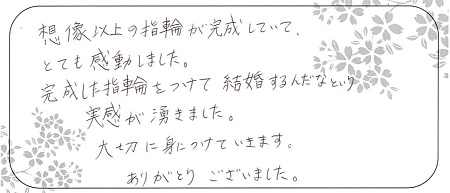 想像以上の指輪が完成していて、
とても感動しました。
完成した指輪をつけて結婚するんだなという
実感が湧きました。
大切に身につけていきます。
ありがとうございました。